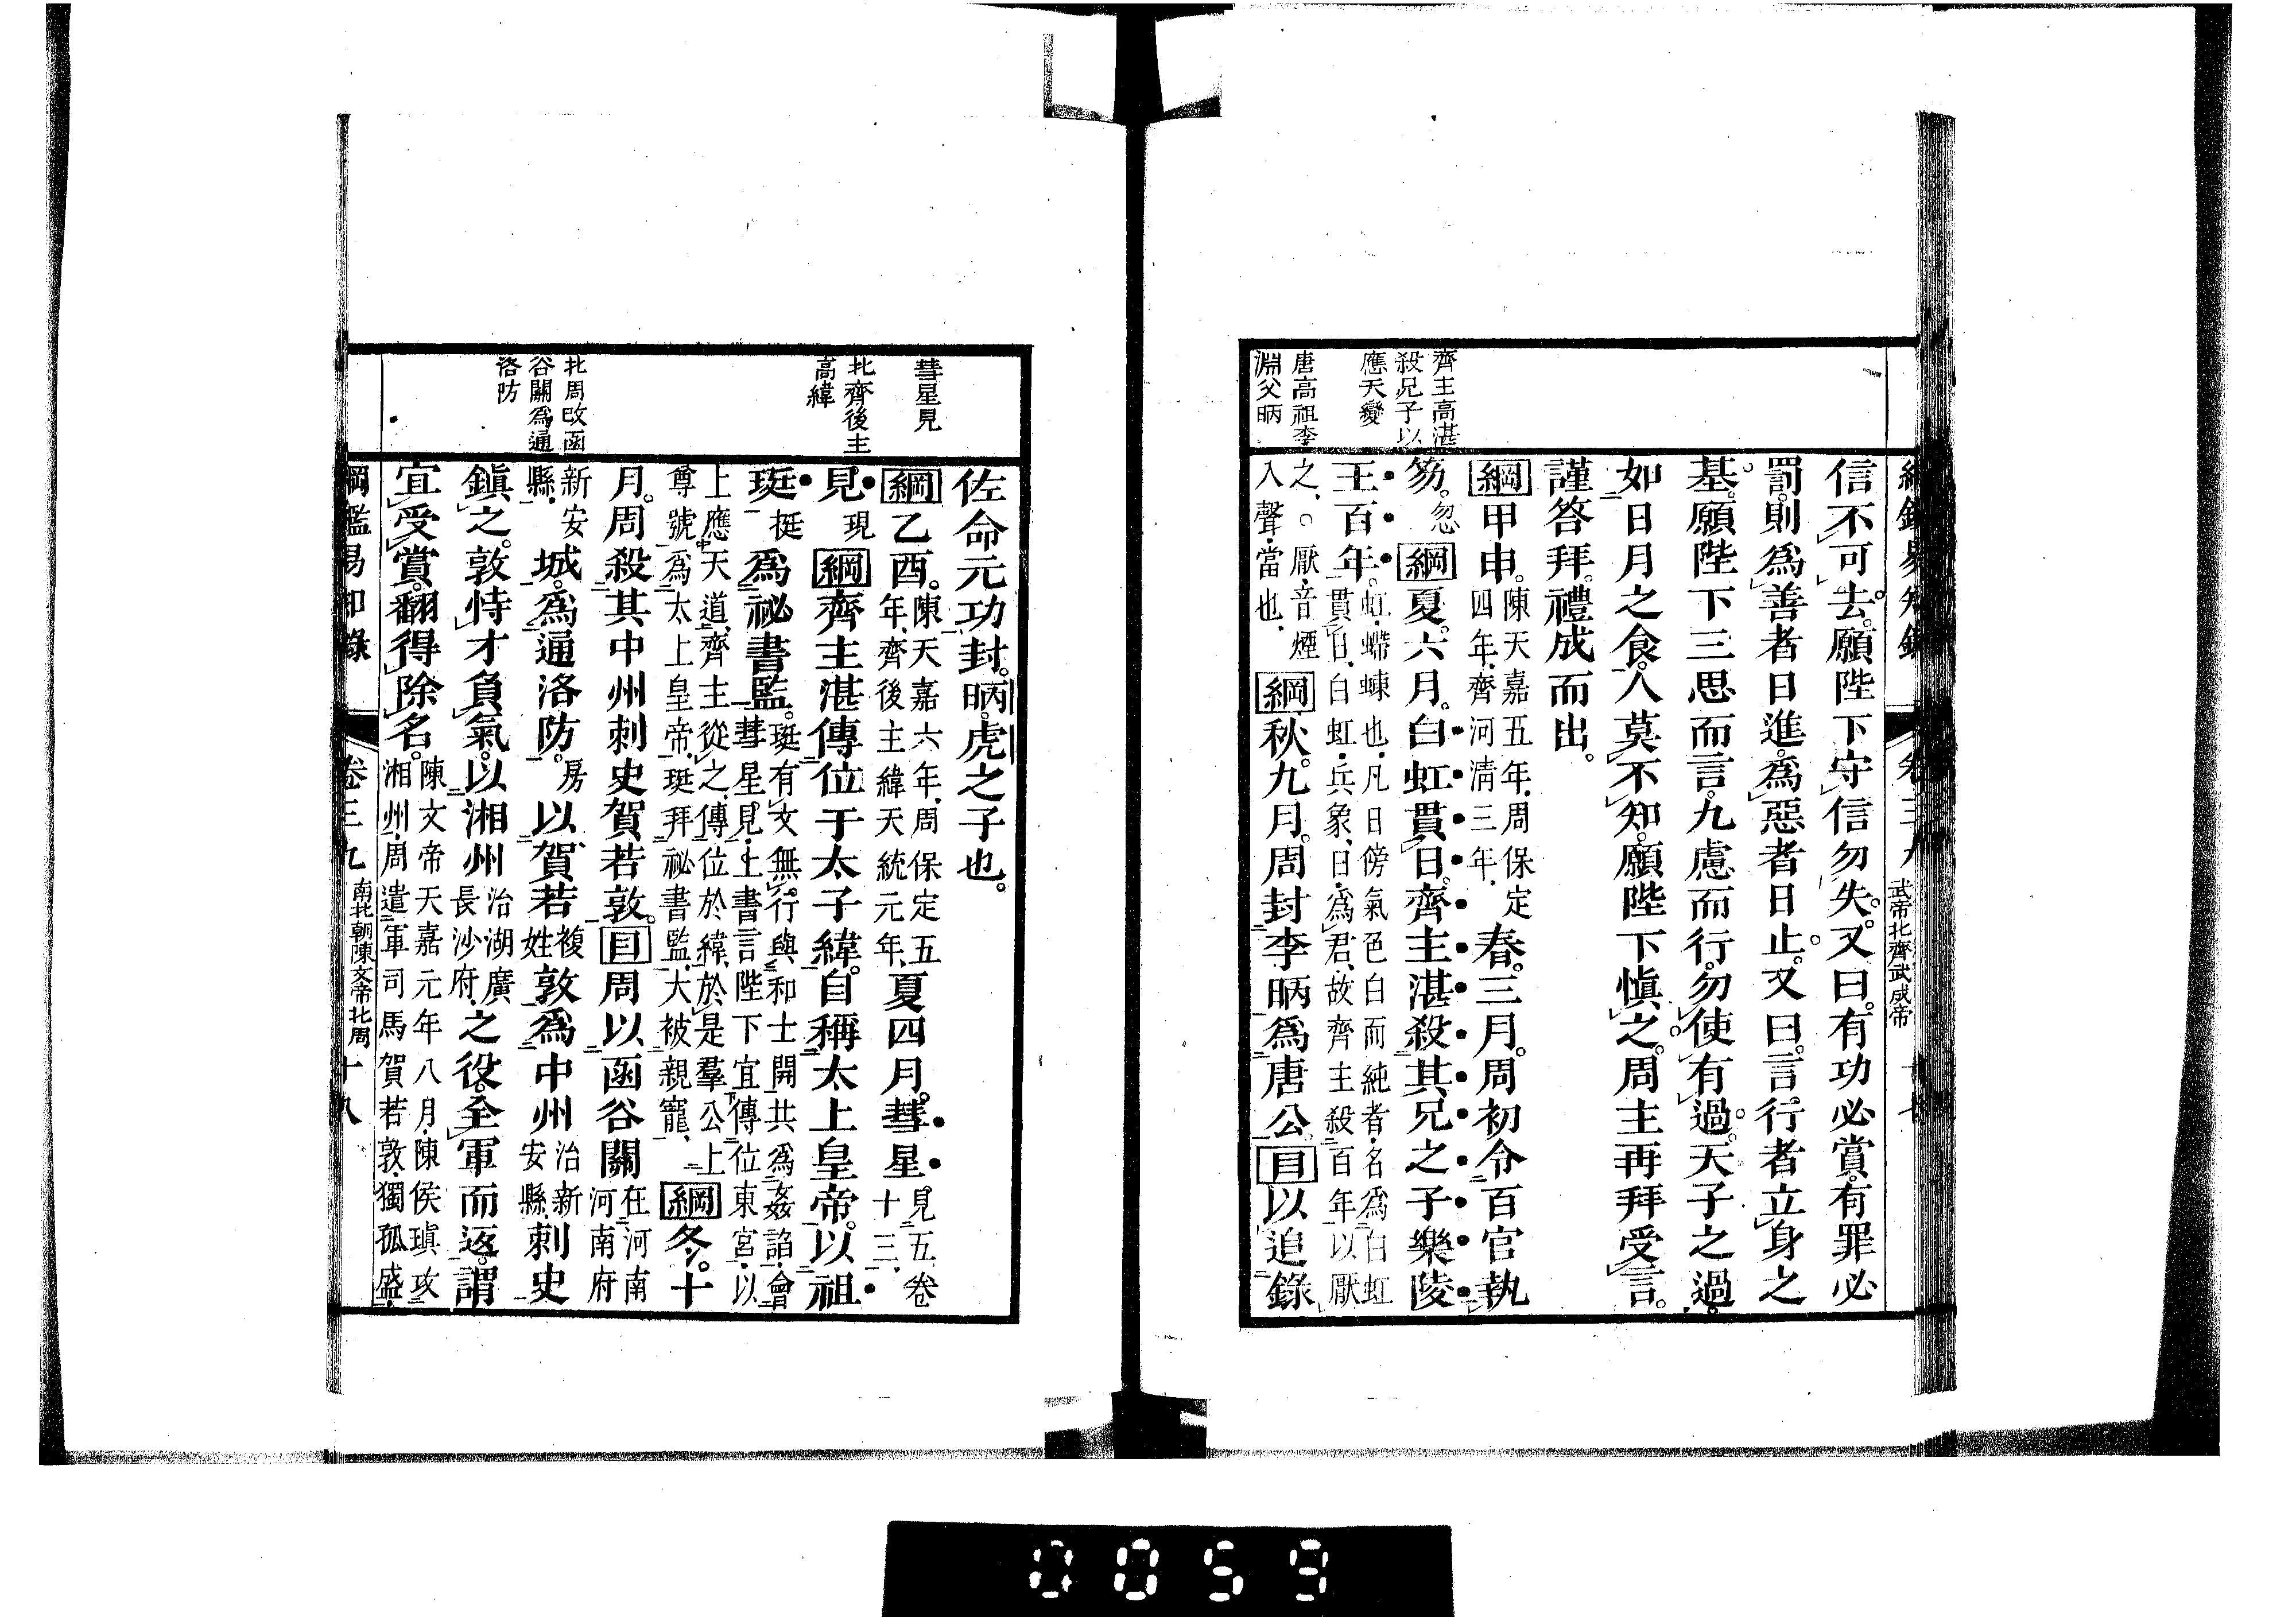 綱鑑易知錄 卷三九 武帝北齊武成帝 十七
信不可去。願陛下守信勿失。又曰。有功必賞。有罪必
罰。則爲善者日進。爲惡者日止。又曰。言行者立身之
基。願陛下三思而言。九慮而行。勿使有過。天子之過。
如日月之食。人莫不知。願陛下愼之。周主再拜受言。
謹答拜。禮成而出。
綱甲申。陳天嘉五年、周保定四年、齊河淸三年、春。三月。周初令百官執
笏。忽綱夏。六月。白虹貫日。齊主湛殺其兄之子樂陵
王百年。虹、螮蝀也、凡日傍氣色白而純者、名爲白虹貫日、白虹、兵象、日、爲君、故齊主殺百年以厭
之、○厭、音煙入聲、當也、綱秋。九月。周封李昞爲唐公。目以追錄
齊主高湛
殺兄子以
應天變
唐高祖李
淵父昞
佐命元功封。昞。虎之子也。
綱乙酉。陳天嘉六年、周保定五年、齊後主緯天統元年、夏四月。彗星見五卷十三、
見。現綱齊主湛傳位于太子緯。自稱太上皇帝。以祖
珽挺爲祕書監。珽有文無行、與和士開共爲姦諂、會彗星見、上書言陛下宜傳位東宮、以
上應天道、齊主從之、傳位於緯、於是羣公上尊號爲太上皇帝、珽拜祕書監、大被親寵、綱冬。十
月。周殺其中州刺史賀若敦。目周以函谷關在河南河南府
新安縣、城。爲通洛防。房以賀若複姓敦爲中州治新安縣、刺史
鎭之。敦恃才負氣。以湘州治湖廣長沙府、之役。全軍而返。謂
宜受賞。翻得除名。陳文帝天嘉元年八月、陳侯瑱攻湘州、周遣軍司馬賀若敦、獨孤盛、
彗星見
北齊後主
高緯
北周改函
谷關爲通
洛防
綱鑑易知錄 卷三九 南北朝陳文帝北周 十八
0059